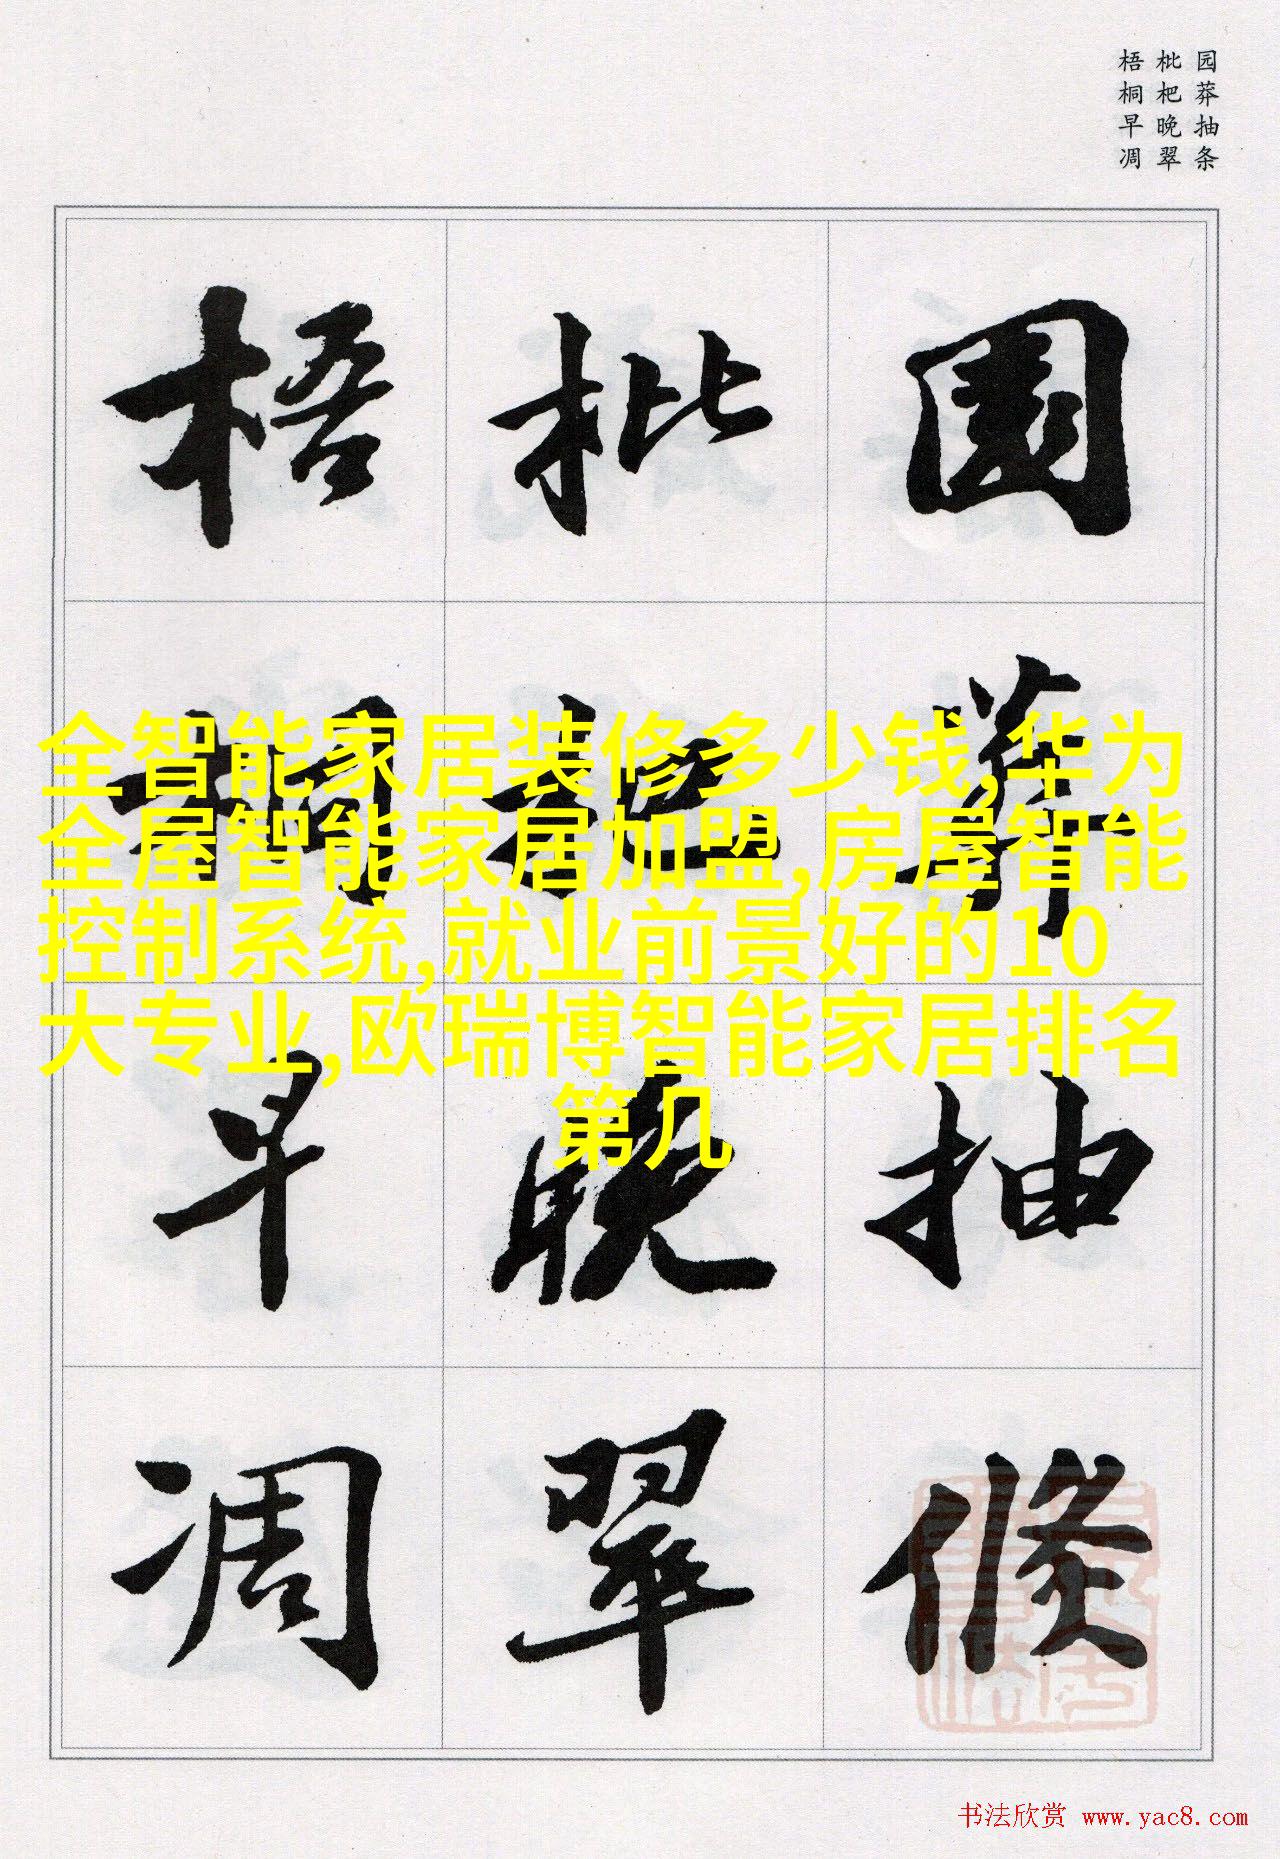 园莽抽条
枇杷晚翠
梧桐早凋
園莽抽條
枇杷晚翠
梧桐早凋
全智能家居装修多少钱,华为
全屋智能家居加盟,房屋智能
控制系统,就业前景好的10
大专业,欧瑞博智能家居排名
第几
书法欣赏 www.yac8.com